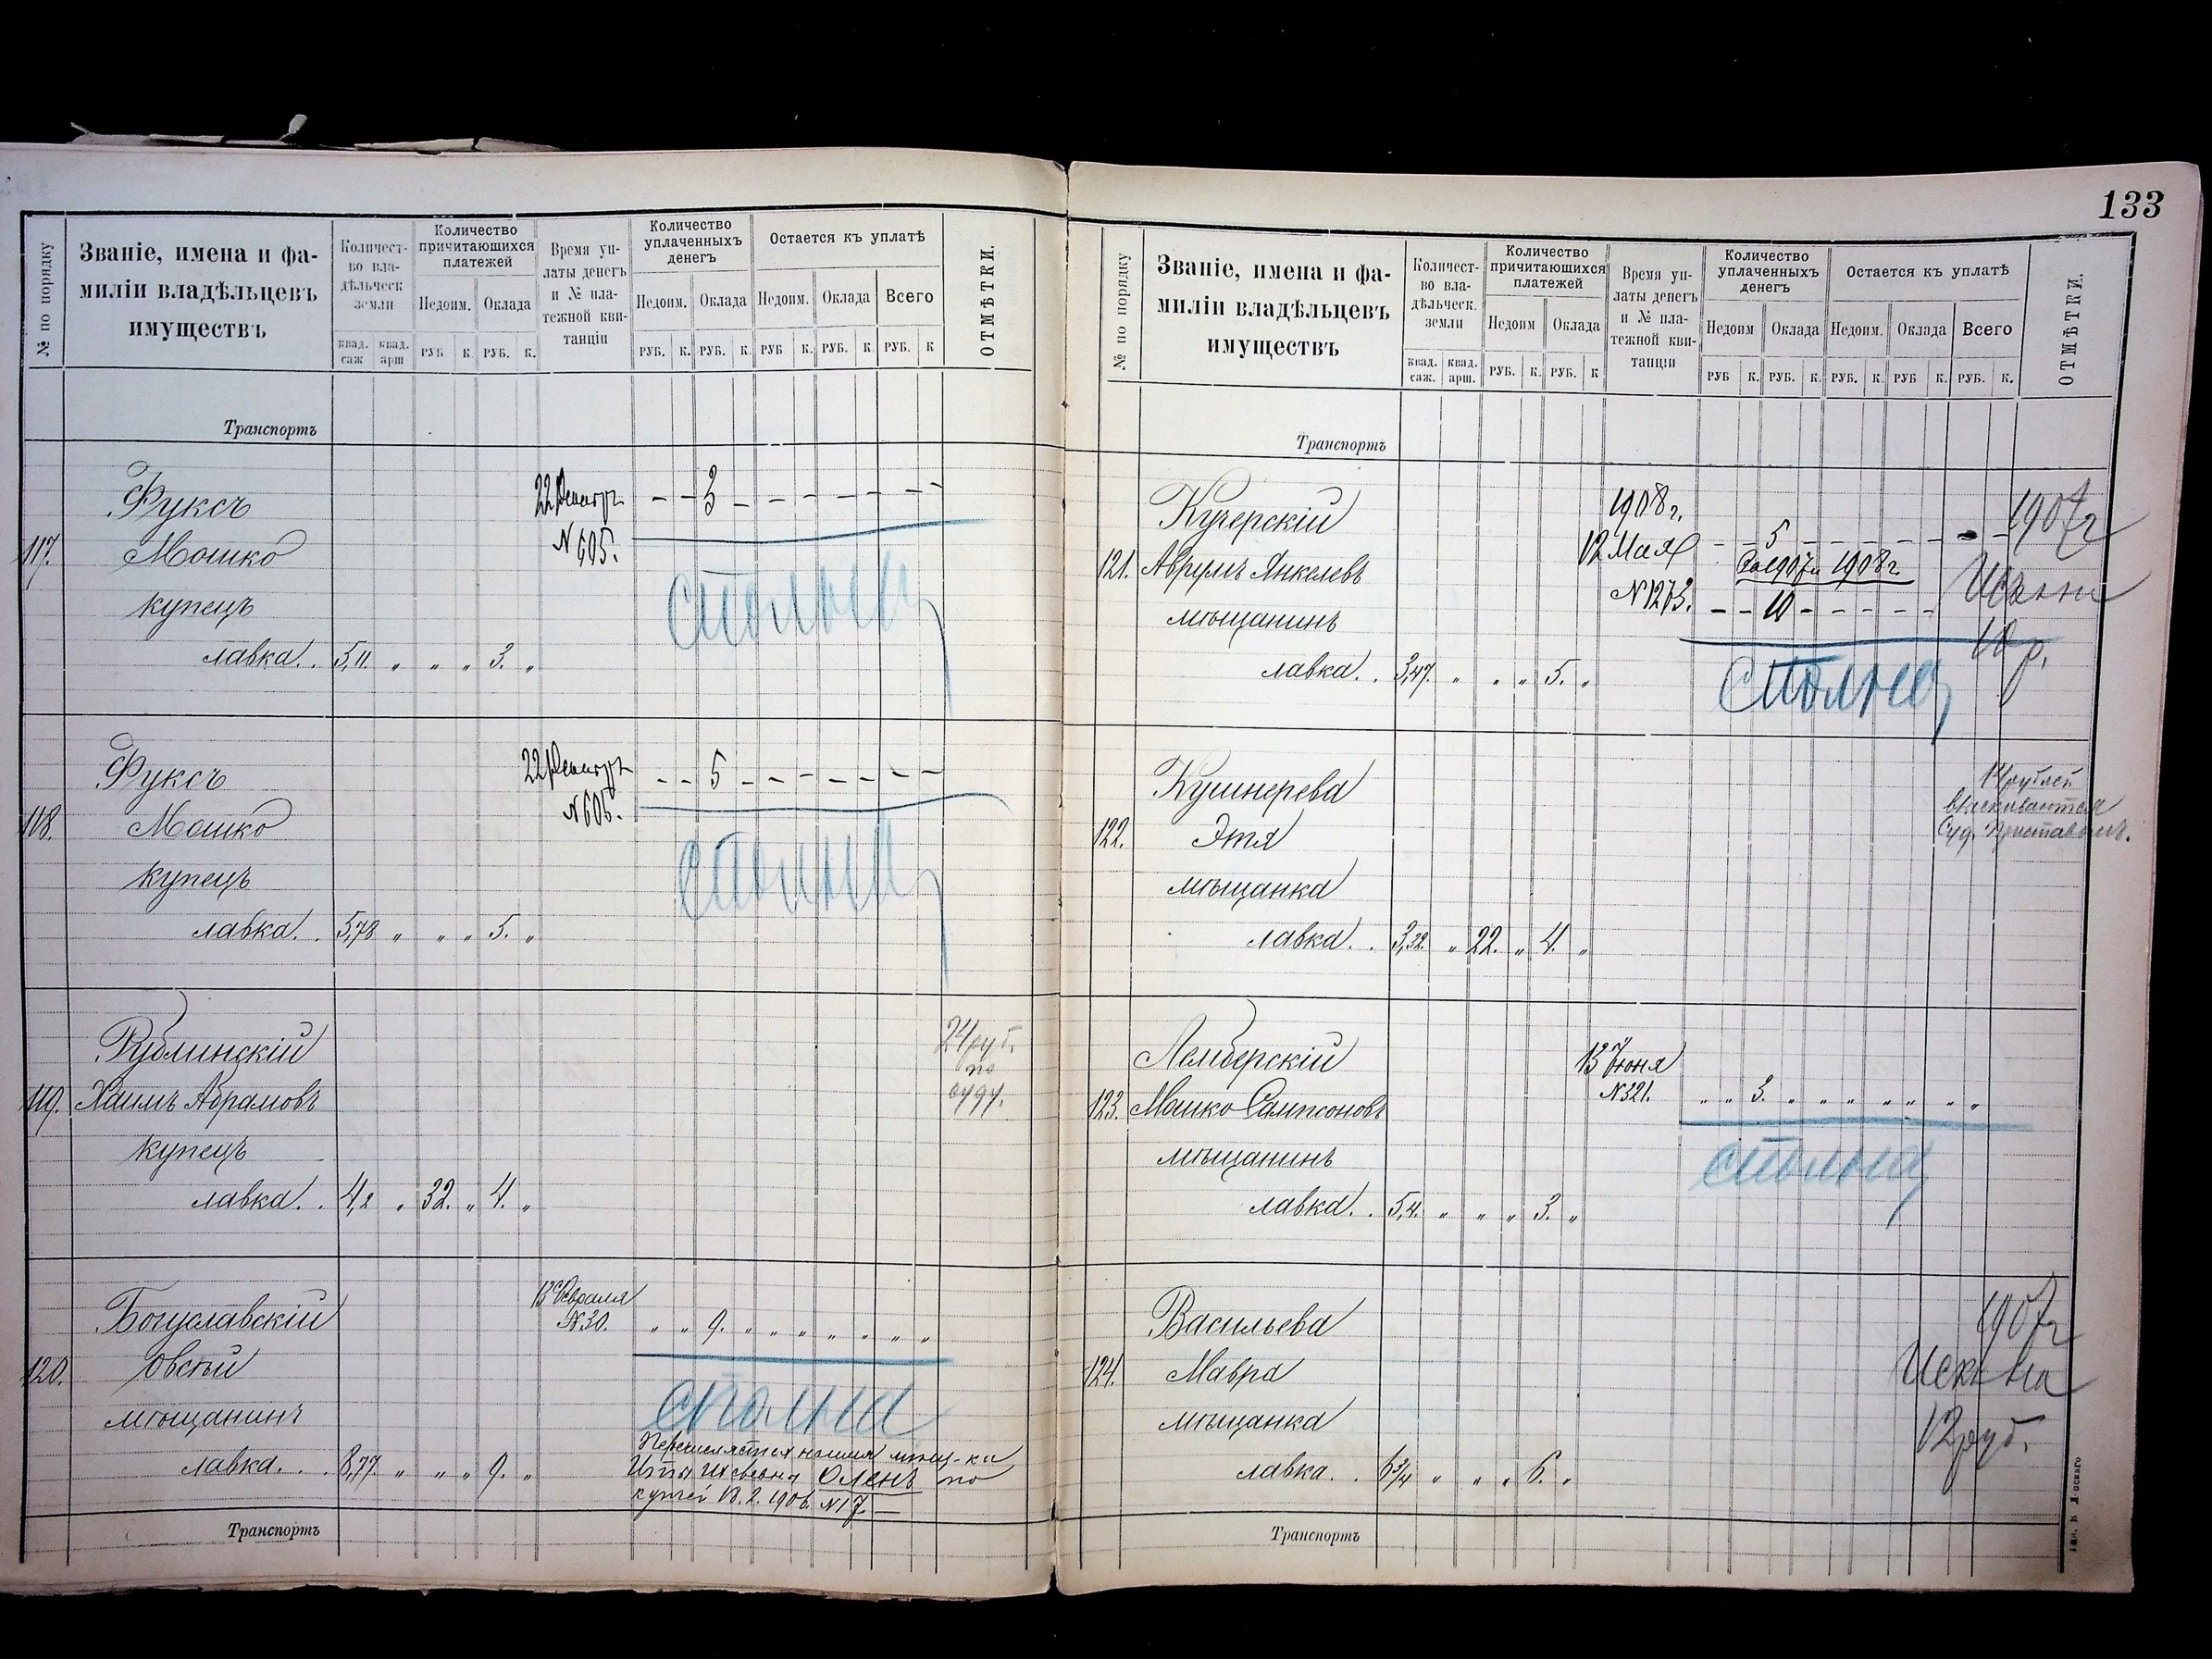 133
№ по порядку
Званіе, имена и фа-
миліи владѣльцевъ
имуществъ
Количест-
во вла-
дѣльческ
земли
квад. саж квад. арш
Количество
причитающихся
платежей
Недоим. Оклада
РУБ К. РУБ. К.
Время уп-
латы денегъ
и № пла-
тежной кви-
танціи
Количество
уплаченныхъ
денегъ
Недоим. Оклада
РУБ. К. РУБ. К.
Остается къ уплатѣ
Недоим. Оклада Всего
РУБ К. РУБ. К. РУБ. К
ОТМѢТКИ.
Транспортъ
Фуксъ
117. Мошко
купецъ
лавка. . 5,11. „ „ „ 3. „
22 Декабр
N 605.
– – 3 – – – – – – –
сполна
Фуксъ
118. Мошко
купецъ
лавка. . 5,78 „ „ „ 5. „
22 Декабр
N 606.
– – 5 – – – – – – –
сполна
Рублинскій
119. Хаимъ Абрамовъ
купецъ
лавка. . 4,2 „ 32. „ 4. „
24 руб.
по
суду.
Богуславскій
120. Овсѣй
мѣщанинъ
лавка. . . 8,77 „ „ „ 9. „
13 Февраля
N 30.
„ „ 9. „ „ „ „ „ „ „
сполна
Оленъ по
купчей 13. 2. 1906. N 17. —
Транспортъ
№ по порядку
Званіе, имена и фа-
миліи владѣльцевъ
имуществъ
Количест-
во вла-
дѣльческ.
земли
квад. саж. квад. арш.
Количество
причитающихся
платежей
Недоим Оклада
РУБ. К. РУБ. К
Время уп-
латы денегъ
и № пла-
тежной кви-
танціи
Количество
уплаченныхъ
денегъ
Недоим Оклада
РУБ К. РУБ. К.
Остается къ уплатѣ
Недоим. Оклада Всего
РУБ. К. РУБ К. РУБ. К.
ОТМѢТКИ.
Транспортъ
Кучерскій
121. Аврумъ Янкелевъ
мѣщанинъ
лавка. . 3,47. „ „ „ 5. „
1908 г.
12 Мая
N 1273.
– – 5 – – – – – – –
За 1907 и 1908 г.
– – 10 – – – – –
сполна
1907 г
Искъ на
10 р.
Кушнерева
122. Этя
мѣщанка
лавка. . 3,32. „ 22. „ 4. „
14 рублей
взыскивается
Суд. Приставомъ.
Лемберскій
123. Мошко Сампсоновъ
мѣщанинъ
лавка. . 5,4. „ „ „ 3. „
13 Июня
N 321.
„ „ 3. „ „ „ „ „ „ „
сполна
Васильева
124. Мавра
мѣщанка
лавка. . 6 3/4 „ „ „ 6. „
1907 г
Искъ на
12 руб.
Транспортъ